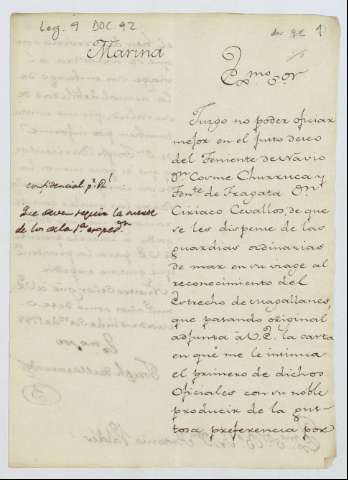 Leg. 9 DOC. 92
1
Marina
Exmo. Sor.
Juzgo no poder oficiar
mejor en el justo deseo
del Teniente de Navio
Dn. Cosme Churruca y
Tente. de Fragata Dn.
Ciriaco Cevallos, de que
se les dispense de las
guardias ordinarias
de mar en su viage al
reconocimiento del
Estrecho de Magallanes,
que pasando original
adjunta à V.E. la carta
en que me le intima
el primero de dichos
Oficiales con su noble
producir de la gus-
tosa preferencia por
confidencial
Que deven seguir la suerte
de los de la 1a.